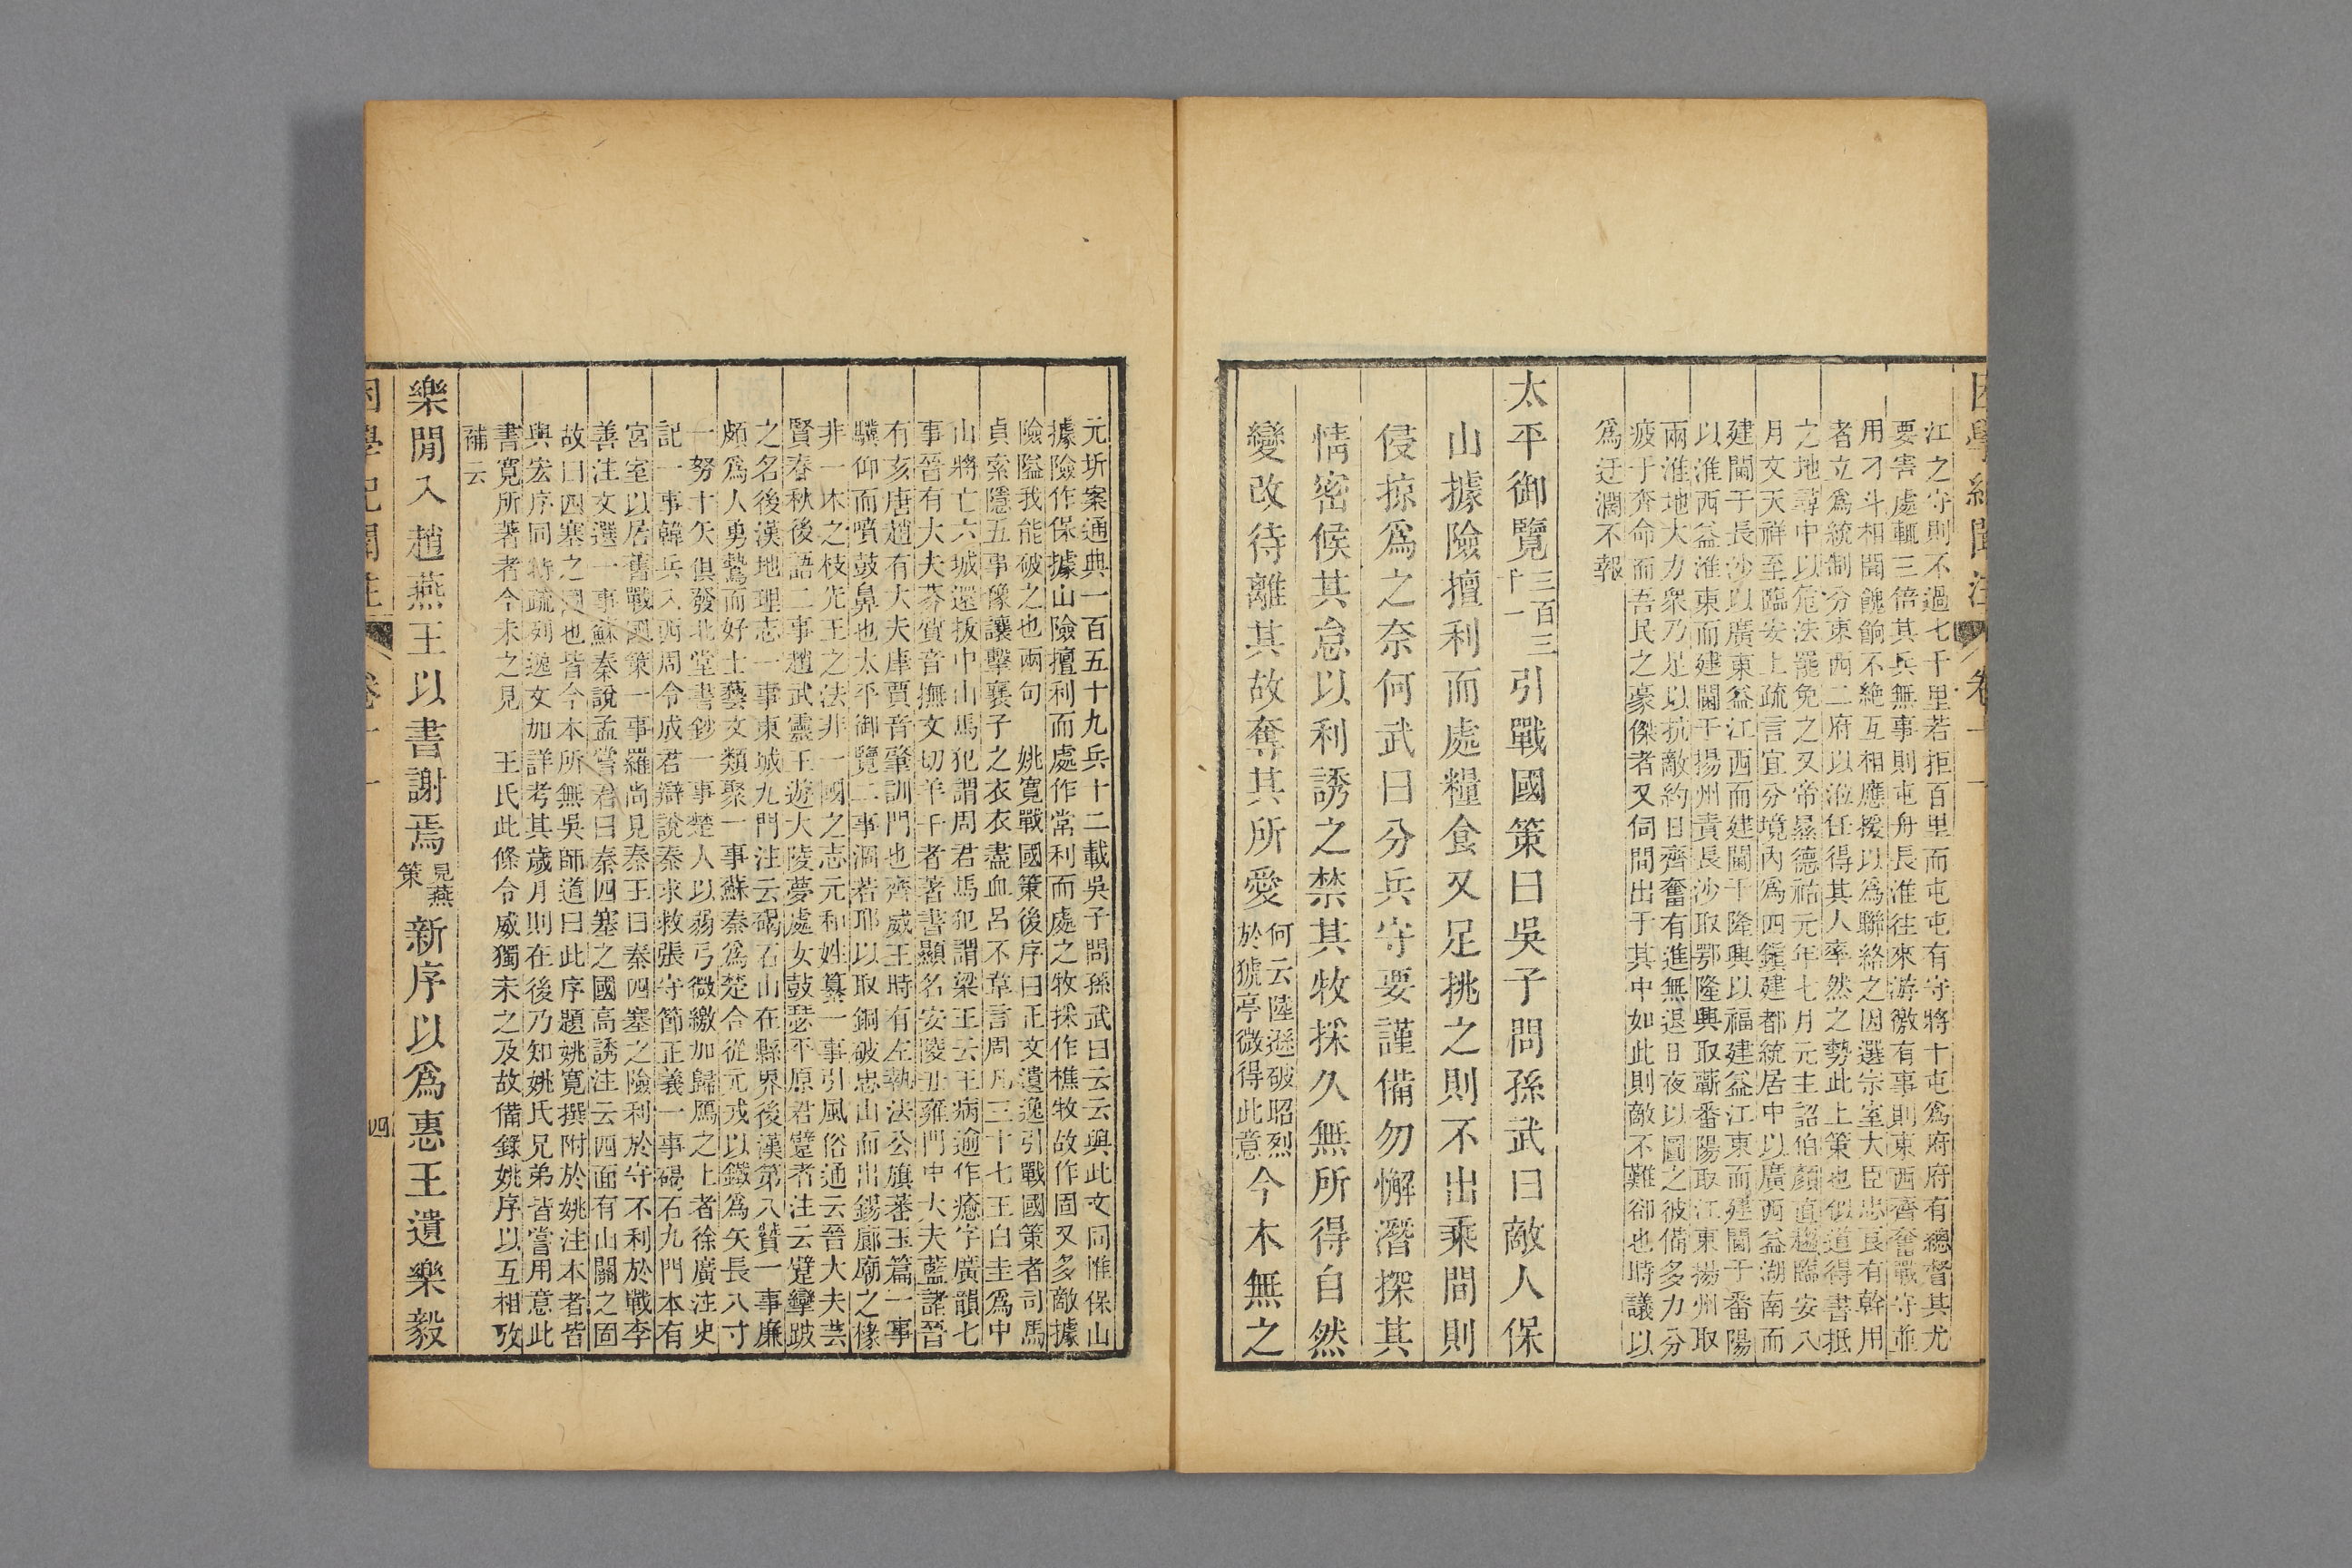 江之守則不過七千里若拒百里而屯屯有守將十屯爲府府有總督其尤
要害處輒三倍其兵無事則屯舟長淮往來游徼有事則東西齊奮戰守並
用刁斗相聞餽餉不絶互相應援以爲聯絡之因選宗室大臣忠良有幹用
者立爲統制分東西二府以涖任得其人率然之勢此上策也似道得書抵
之地尋中以危法罷免之又帝㬎德祐元年七月元主詔伯顔直趨臨安八
月文天祥至臨安上疏言宜分境內爲四鎮建都統居中以廣西益湖南而
建閫于長沙以廣東益江西而建閫于隆興以福建益江東而建閫于番陽
以淮西益淮東而建閫于揚州責長沙取鄂隆興取蘄番陽取江東揚州取
兩淮地大力衆乃足以抗敵約日齊奮有進無退日夜以圖之彼備多力分
疲于奔命而吾民之豪傑者又伺間出于其中如此則敵不難卻也時議以
爲迂濶不報
太平御覽三百三十一引戰國策曰吳子問孫武曰敵人保
山據險擅利而處糧食又足挑之則不出乘間則
侵掠爲之奈何武曰分兵守要謹備勿懈潛探其
情密候其怠以利誘之禁其牧採久無所得自然
變改待離其故奪其所愛何云陸遜破昭烈於猇亭微得此意今本無之
元圻案通典一百五十九兵十二載吳子問孫武曰云云與此文同惟保山
據險作保據山險擅利而處作常利而處之牧採作樵牧故作固又多敵據
險隘我能破之也兩句 姚寬戰國策後序曰正文遺逸引戰國策者司馬
貞索隱五事豫讓擊襄子之衣衣盡血呂不韋言周凡三十七王白圭爲中
山將亡六城還拔中山馬犯謂周君馬犯謂梁王云王病逾作癒字廣韻七
事晉有大夫芬質音撫文切羊千者著書顯名安陵丑雍門中大夫藍諸晉
有亥唐趙有大夫庫賈音肇訓門也齊威王時有左執法公旗蕃玉篇一事
驥仰而噴鼓鼻也太平御覽二事涸若耶以取銅破忠山而出錫廊廟之椽
非一木之枝先王之法非一國之志元和姓纂一事引風俗通云晉大夫芸
賢春秋後語二事趙武靈王遊大陵夢處女鼓瑟平原君躄者注云躄攣跛
之名後漢地理志一事東城九門注云碣石山在縣界後漢第八贊一事廉
頗爲人勇鷙而好士藝文類聚一事蘇秦爲楚合從元戎以鐵爲矢長八寸
一弩十矢俱發北堂書鈔一事楚人以弱弓微繳加歸鴈之上者徐廣注史
記一事韓兵入西周令成君辯說秦求救張守節正義一事碣石九門本有
宮室以居舊戰國策一事羅尚見秦王曰秦四塞之險利於守不利於戰李
善注文選一事蘇秦說孟嘗君曰秦四塞之國高誘注云四面有山關之固
故曰四塞之國也皆今本所無吳師道曰此序題姚寬撰附於姚注本者皆
與宏序同特疏列逸文加詳考其歲月則在後乃知姚氏兄弟皆嘗用意此
書寬所著者今未之見 王氏此條令威獨未之及故備錄姚序以互相攷
補云
樂閒入趙燕王以書謝焉見燕策新序以爲惠王遺樂毅
四